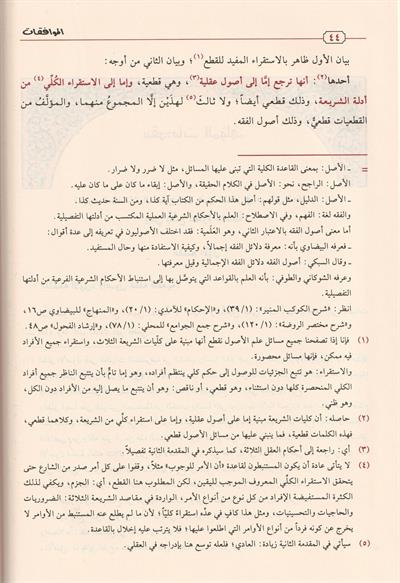 ٤٤
الموافقات
بيان الأول ظاهر بالاستقراء المفيد للقطع(١)؛ وبيان الثاني من أوجه:
أحدها(٢): أنها ترجع إمَّا إلى أصول عقلية(٣)، وهي قطعية، وإما إلى الاستقراء الكُلِّي(٤) من
أدلة الشريعة، وذلك قطعي أيضاً؛ ولا ثالث(٥) لهذَيْن إلَّا المجموعُ منهما، والمؤلَّف من
القطعيات قطعيٌّ، وذلك أصول الفقه.
= ـ الأصل: بمعنى القاعدة الكلية التي تبنى عليها المسائل، مثل لا ضرر ولا ضرار.
ـ الأصل: الراجح، نحو: الأصل في الكلام الحقيقة، والأصل: إبقاء ما كان على ما كان عليه.
ـ الأصل: الدليل، مثل قولهم: أصل هذا الحكم من الكتاب آية كذا، ومن السنة حديث كذا.
والفقه لغة: الفهم، وفي الاصطلاح: العلم بالأحكام الشرعية العملية المكتسب من أدلتها التفصيلية.
أما معنى أصول الفقه بالاعتبار الثاني، وهو العَلَمية: فقد اختلف الأصوليون في تعريفه إلى عدة أقوال:
ـ فعرفه البيضاوي بأنه: معرفة دلائل الفقه إجمالاً، وكيفية الاستفادة منها وحال المستفيد.
ـ وقال السبكي: أصول الفقه دلائل الفقه الإجمالية وقيل معرفتها.
وعرفه الشوكاني والطوفي: بأنه العلم بالقواعد التي يتوصَّل بها إلى استنباط الأحكام الشرعية الفرعية من أدلتها
التفصيلية.
انظر: «شرح الكوكب المنير»: (٣٩/١)، و«الإحكام» للآمدي: (٢٠/١)، و«المنهاج» للبيضاوي ص١٦،
و«شرح مختصر الروضة»: (١٢٠/١)، و«شرح جمع الجوامع» للمحلي: (٧٨/١)، و«إرشاد الفحول» ص٤٨.
(١) فإنا إذا تصفحنا جميع مسائل علم الأصول نقطع أنها مبنية على كليَّات الشريعة الثلاث، واستقراء جميع الأفراد
فيه ممكن، فإنها مسائل محصورة.
والاستقراء: هو تتبع الجزئيات للوصول إلى حكم كلي ينتظم أفراده، وهو إما تامٌّ بأن يتتبع الناظر جميع أفراد
الكلي المنحصرة كلها دون استثناء، وهو قطعي، أو ناقص: وهو أن يتتبع ما يصل إليه من الأفراد دون الكل،
وهو ظني.
(٢) حاصله: أن كليات الشريعة مبنية إما على أصول عقلية، وإما على استقراء كلِّي من الشريعة، وكلاهما قطعي،
فهذه الكلمات قطعية، فما ينبني عليها من مسائل الأصول قطعي.
(٣) أي: راجعة إلى أحكام العقل الثلاثة، كما سيذكره في المقدمة الثانية تفصيلاً.
(٤) لا يتأتى عادة أن يكون المستنبطون لقاعدة «أن الأمر للوجوب» مثلاً، وقفوا على كل أمر صدر من الشارع حتى
يتحقق الاستقراء الكلِّي المعروف الموجب لليقين، لكن المطلوب هنا القطع، أي: الجزم، ويكفي لذلك
الكثرة المستفيضة الإفراد من كل نوع من أنواع الأمر، الواردة في مقاصد الشريعة الثلاثة: الضروريات
والحاجيات والتحسينيات، ومثل هذا كافٍ في عدِّه استقراءً كليَّاً؛ لأن ما لم يطلع عنه المستنبط من الأوامر لا
يخرج عن كونه فرداً من أنواع الأوامر التي اطلعوا عليها؛ فلا يترتب عليه إخلال بالقاعدة.
(٥) سيأتي في المقدمة الثانية زيادة: العادي؛ فلعله توسع هنا بإدراجه في العقلي.